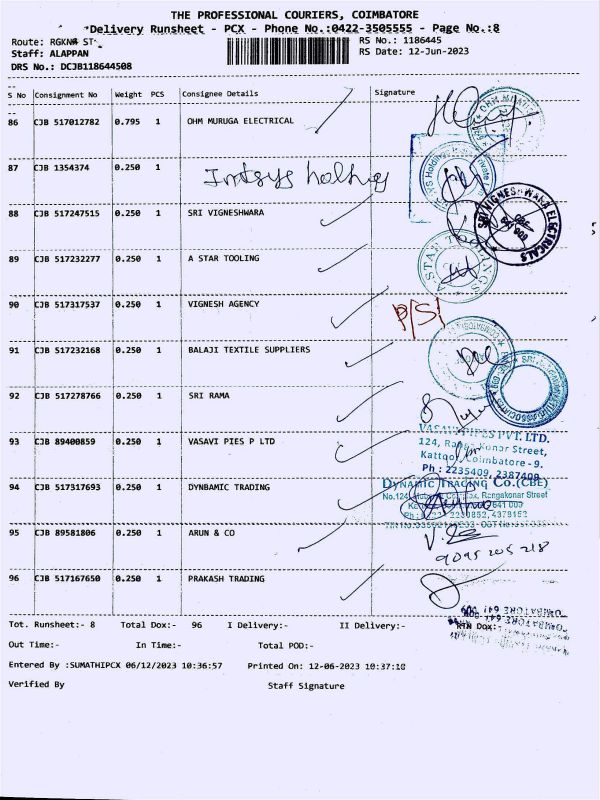 THE PROFESSIONAL COURIERS, COIMBATORE
Delivery Runsheet - PCX - Phone No.:0422-3505555 - Page No.:8
Route: RGKNR ST
RS No.: 1186445
Staff: ALAPPAN
RS Date: 12-Jun-2023
DRS No.: DCJB118644508
S No Consignment No Weight PCS Consignee Details Signature
86 CJB 517012782 0.795 1 OHM MURUGA ELECTRICAL
87 CJB 1354374 0.250 1
88 CJB 517247515 0.250 1 SRI VIGNESHWARA
SRI VIGNESHWARA ELECTRICALS
89 CJB 517232277 0.250 1 A STAR TOOLING
90 CJB 517317537 0.250 1 VIGNESH AGENCY
P/S/
91 CJB 517232168 0.250 1 BALAJI TEXTILE SUPPLIERS
92 CJB 517278766 0.250 1 SRI RAMA
93 CJB 89400859 0.250 1 VASAVI PIES P LTD
VASAVI PIPES PVT. LTD.
124, Ranga Konar Street,
Kattoor, Coimbatore - 9.
Ph : 2235409, 2387409
94 CJB 517317693 0.250 1 DYNBAMIC TRADING
DYNAMIC TRADING CO. (CBE)
Rangakonar Street
641 009
95 CJB 89581806 0.250 1 ARUN & CO
9095 205 218
96 CJB 517167650 0.250 1 PRAKASH TRADING
Tot. Runsheet:- 8 Total Dox:- 96 I Delivery:- II Delivery:- RTN DOX:-
Out Time:- In Time:- Total POD:-
Entered By :SUMATHIPCX 06/12/2023 10:36:57 Printed On: 12-06-2023 10:37:18
Verified By Staff Signature